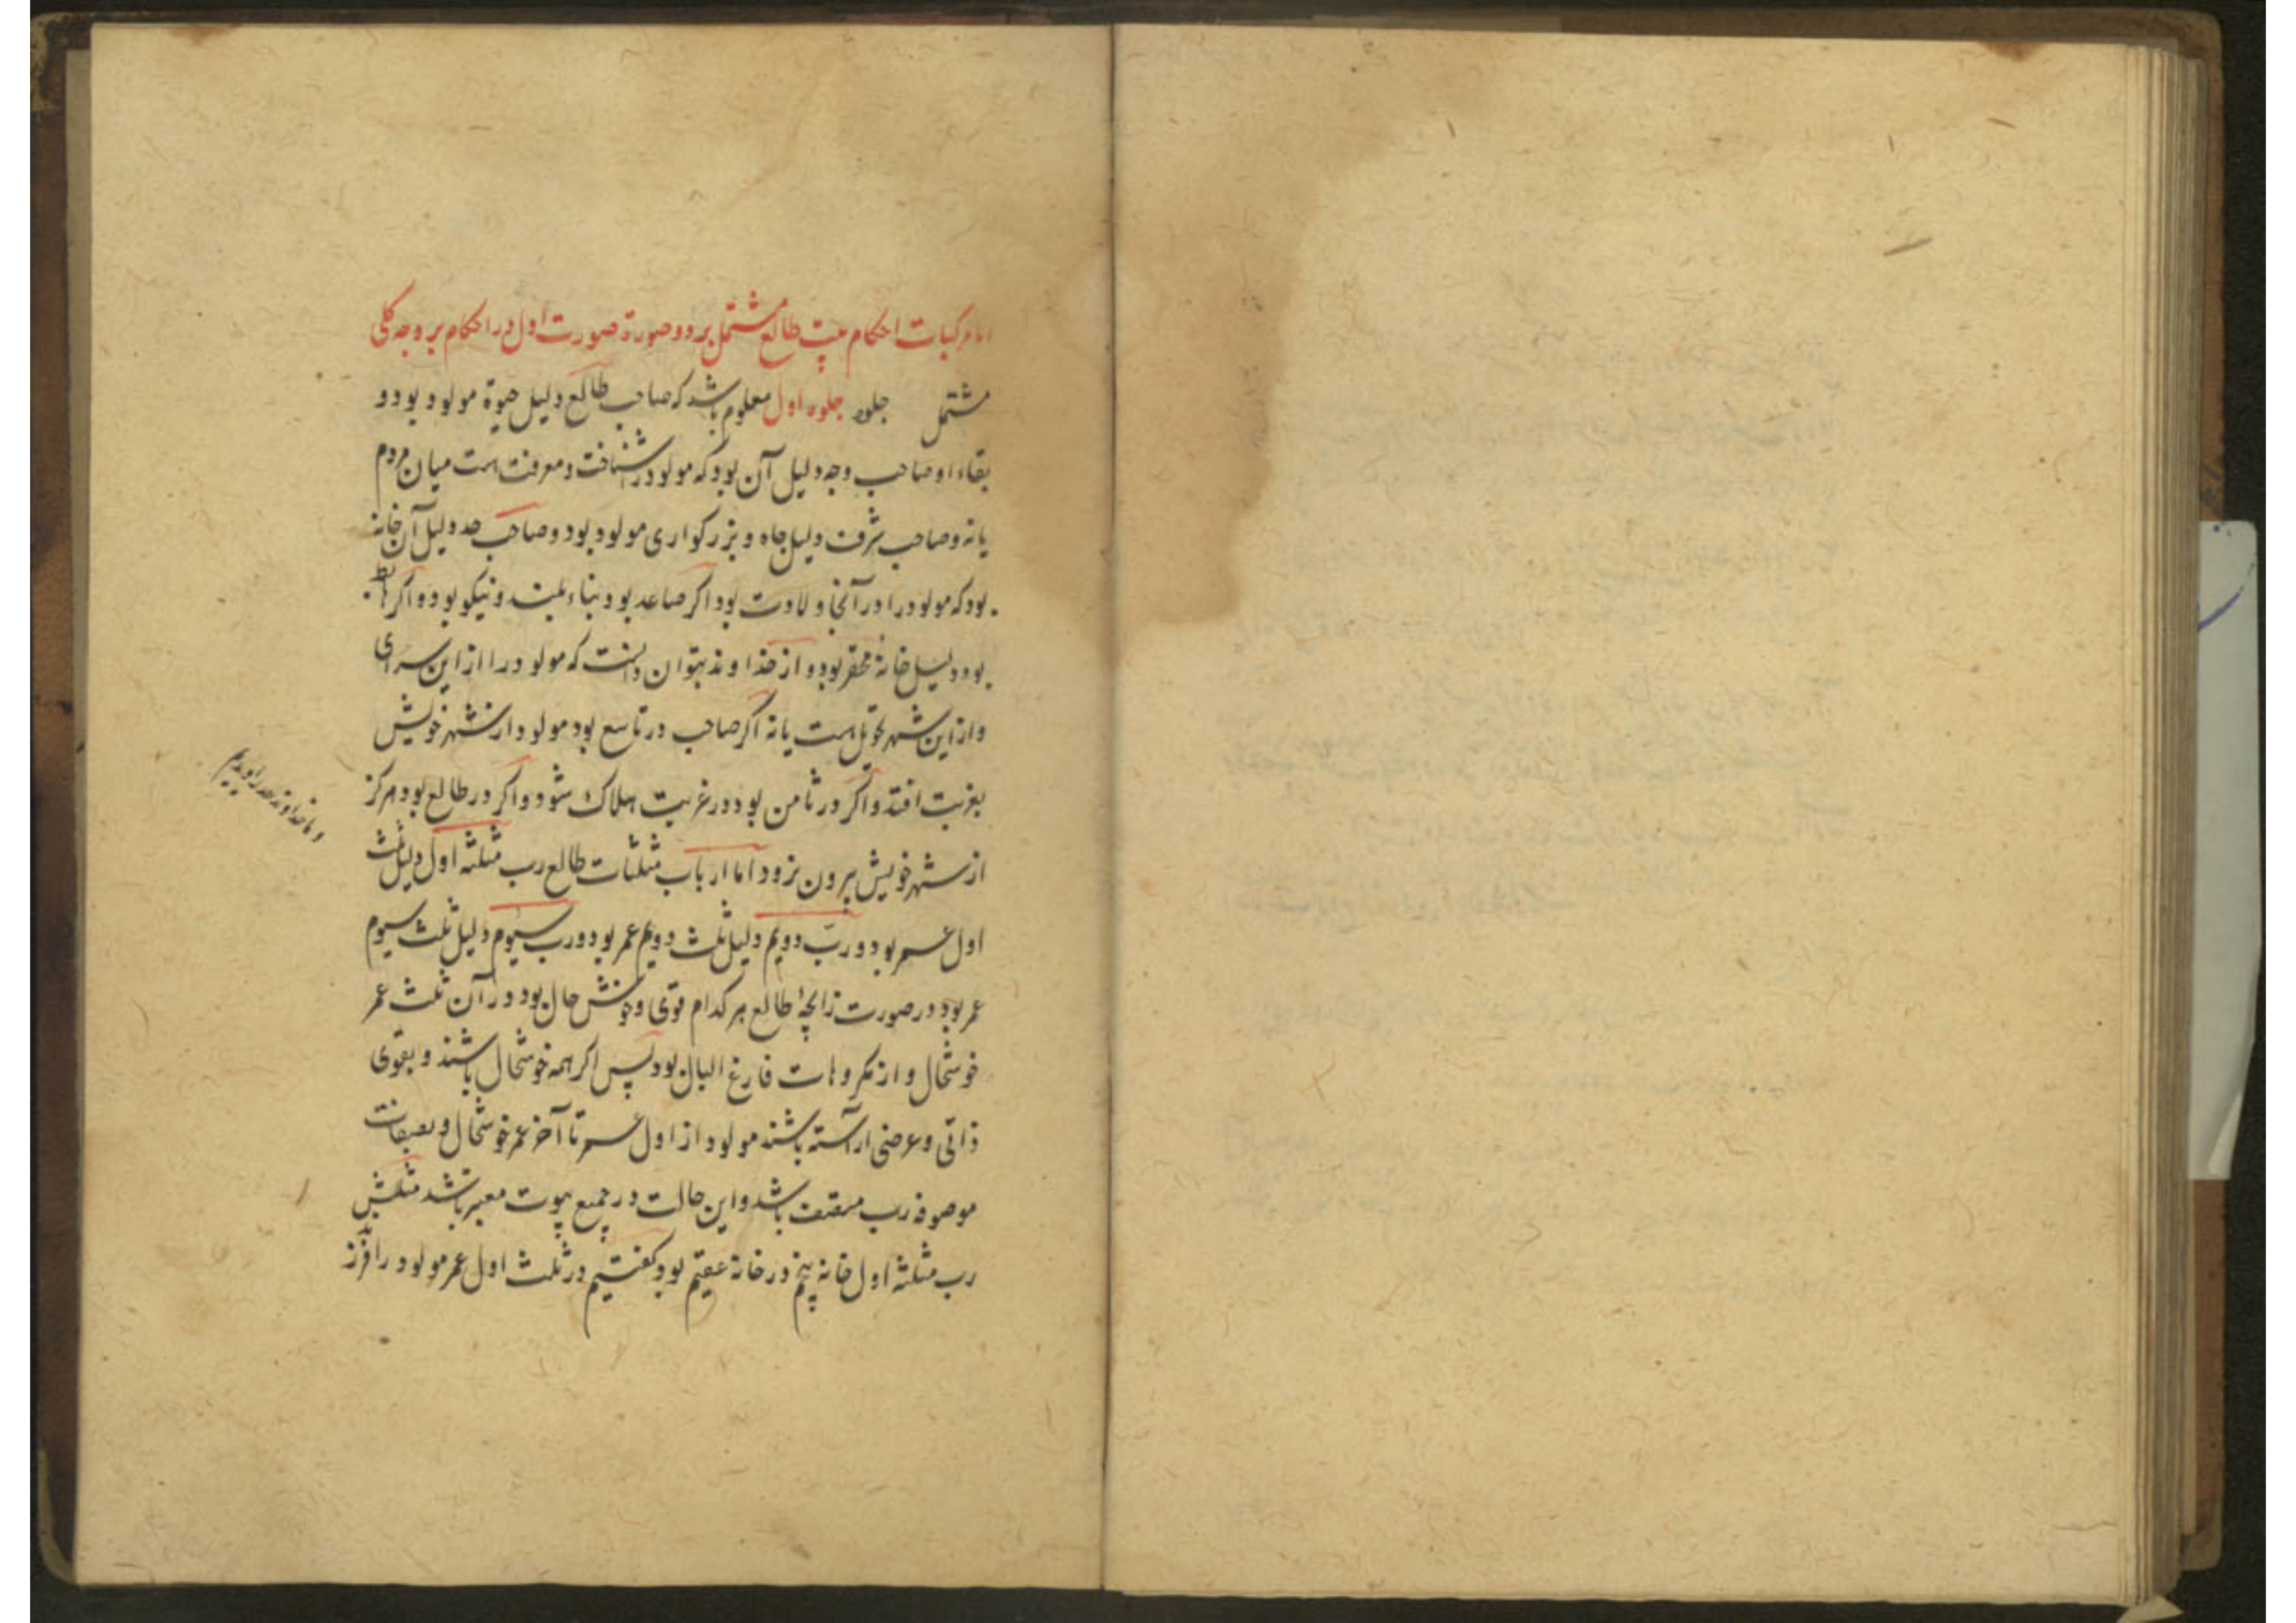 اما مرکبات احکام بیت طالع مشتمل بر دو صورة صورت اول در احکام بر وجه کلی
مشتمل جلوه جلوه اول معلوم باشد که صاحب طالع دلیل حیوة مولود بود و
بقاء او صاحب وجه دلیل آن بود که مولود در شناخت و معرفت هست میان مردم
یا نه و صاحب شرف دلیل جاه و بزرگواری مولود بود و صاحب حد دلیل آن خانه
بود که مولود را در آنجا ولادت بود اگر صاعد بود بناء بلند و نیکو بود و اگر هابط
بود دلیل خانهٔ محقر بود و از خداوند بتوان دانست که مولود را از این سرای
و از این شهر تحویل هست یا نه اگر صاحب در تاسع بود مولود از شهر خویش
بغربت افتد و اگر در ثامن بود در غربت هلاک شود و اگر در طالع بود هرگز
از شهر خویش بیرون نرود اما ارباب مثلثات طالع رب مثلثه اول دلیل ثلث
اول عمر بود و رب دویم دلیل ثلث دویم عمر بود و رب سیوم دلیل ثلث سیوم
عمر بود در صورت زایچهٔ طالع هر کدام قوی و خوش حال بود در آن ثلث عمر
خوشحال و از مکروهات فارغ البال بود پس اگر همه خوشحال باشند و بقوی
ذاتی و عرضی آراسته باشند مولود از اول عمر تا آخر عمر خوشحال و بصفات
موصوفه رب متصف باشد و این حالت در جمیع بیوت معتبر باشد مثلش
رب مثلثه اول خانه پنجم در خانهٔ عقیم بود گفتیم در ثلث اول عمر مولود را فرزند
و ما خداوند حد را دیدیم